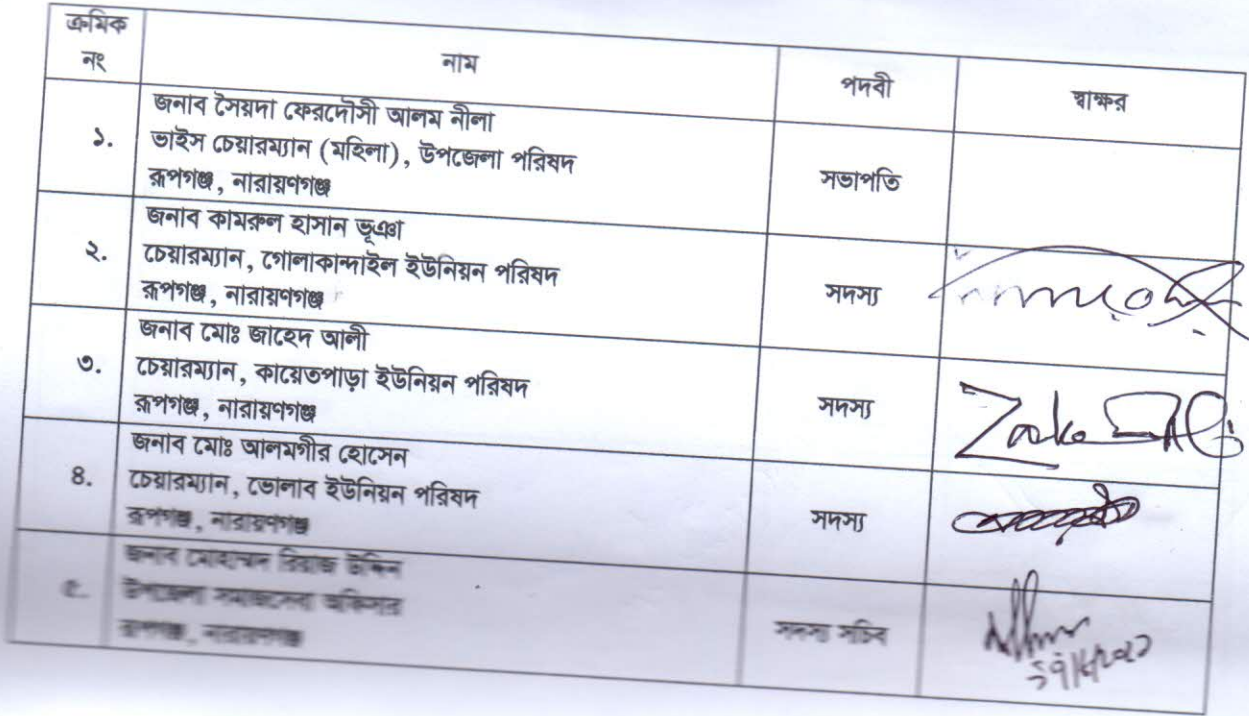 ক্রমিক
নং
নাম
পদবী
স্বাক্ষর
১.
জনাব সৈয়দা ফেরদৌসী আলম নীলা
ভাইস চেয়ারম্যান (মহিলা), উপজেলা পরিষদ
রূপগঞ্জ, নারায়ণগঞ্জ
সভাপতি
২.
জনাব কামরুল হাসান ভূঞা
চেয়ারম্যান, গোলাকান্দাইল ইউনিয়ন পরিষদ
রূপগঞ্জ, নারায়ণগঞ্জ
সদস্য
৩.
জনাব মোঃ জাহেদ আলী
চেয়ারম্যান, কায়েতপাড়া ইউনিয়ন পরিষদ
রূপগঞ্জ, নারায়ণগঞ্জ
সদস্য
৪.
জনাব মোঃ আলমগীর হোসেন
চেয়ারম্যান, ভোলাব ইউনিয়ন পরিষদ
রূপগঞ্জ, নারায়ণগঞ্জ
সদস্য
৫.
জনাব মোহাম্মদ রিয়াজ উদ্দিন
উপজেলা সমাজসেবা অফিসার
রূপগঞ্জ, নারায়ণগঞ্জ
সদস্য সচিব